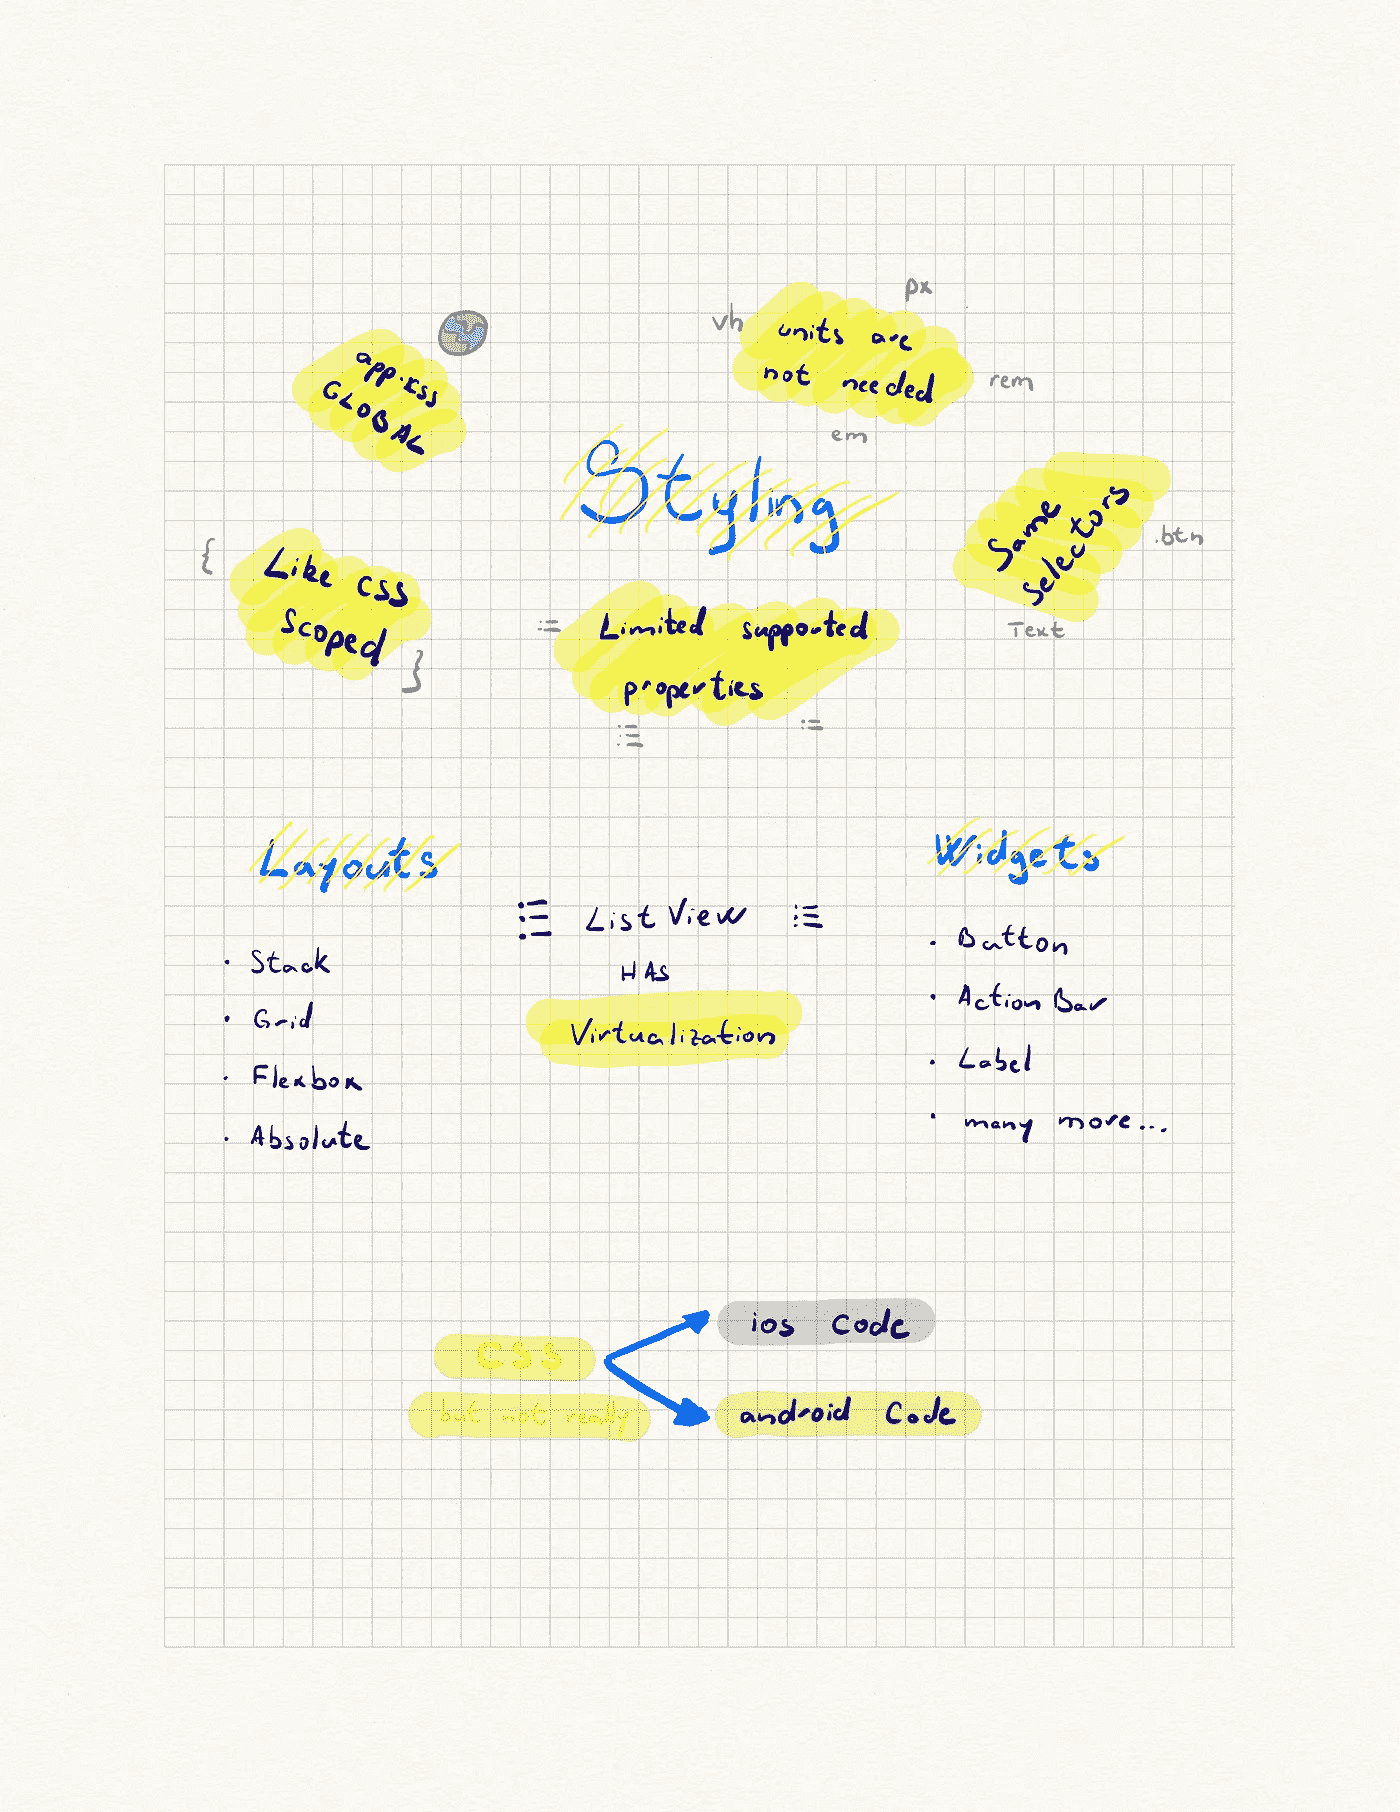 px
vh
units are
not needed
rem
em
app.css
GLOBAL
Styling
Same
Selectors
.btn
Text
{
Like CSS
Scoped
}
Limited supported
properties
Layouts
• Stack
• Grid
• Flexbox
• Absolute
List View
HAS
Virtualization
Widgets
• Button
• Action Bar
• Label
• many more...
CSS
but not really
ios Code
android Code